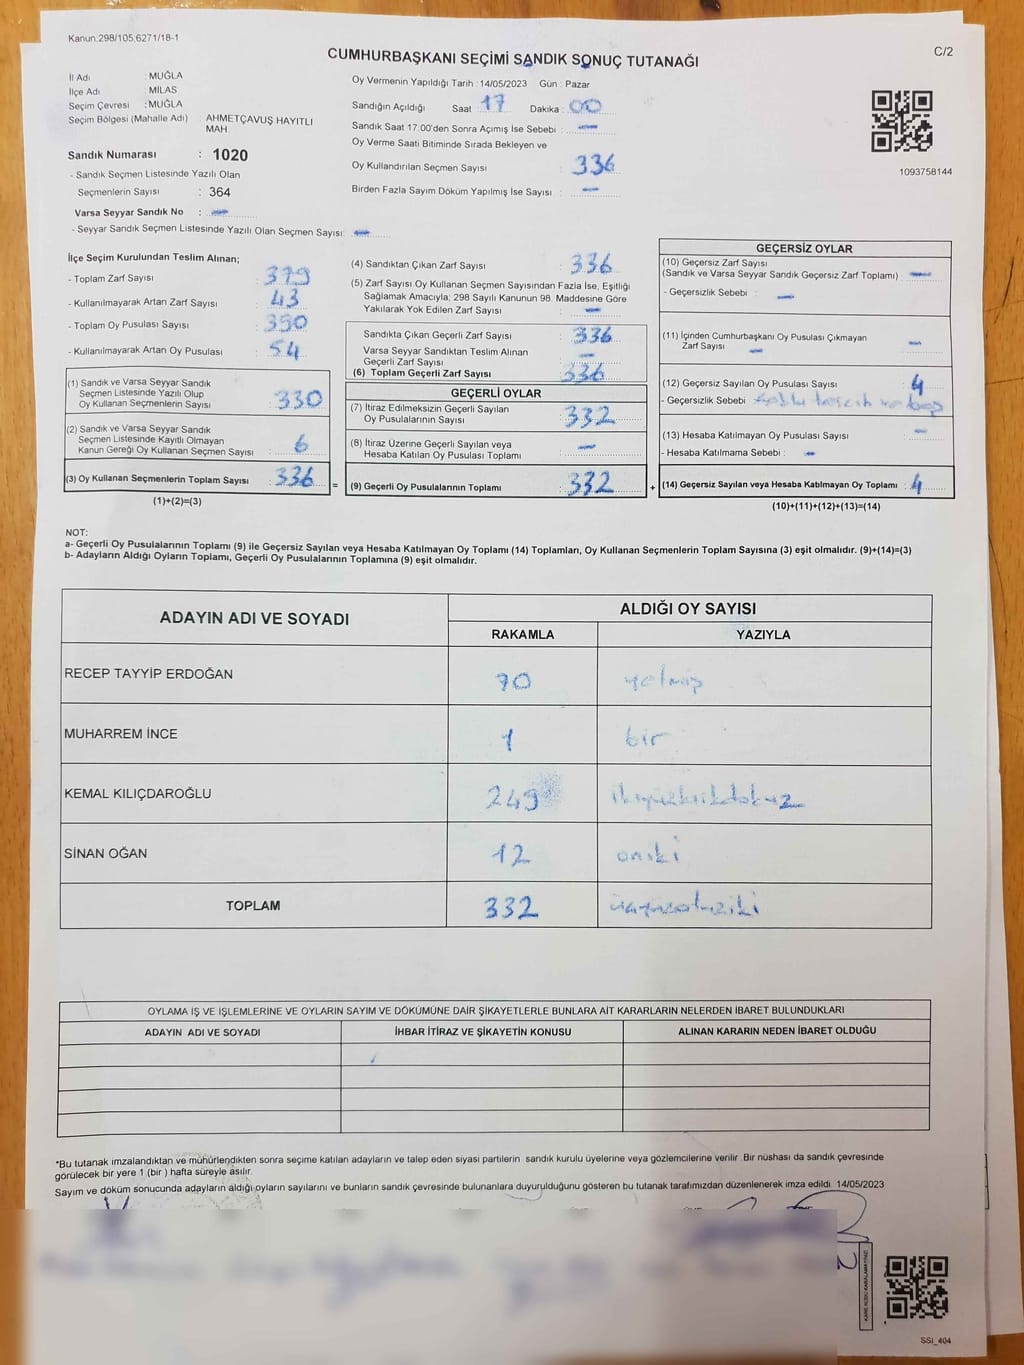 Kanun:298/105,6271/18-1
C/2
CUMHURBAŞKANI SEÇİMİ SANDIK SONUÇ TUTANAĞI
İl Adı : MUĞLA
İlçe Adı : MİLAS
Seçim Çevresi : MUĞLA
Seçim Bölgesi (Mahalle Adı) : AHMETÇAVUŞ HAYITLI
MAH.
Sandık Numarası : 1020
- Sandık Seçmen Listesinde Yazılı Olan
Seçmenlerin Sayısı : 364
Varsa Seyyar Sandık No : -
- Seyyar Sandık Seçmen Listesinde Yazılı Olan Seçmen Sayısı: -
Oy Vermenin Yapıldığı Tarih : 14/05/2023 Gün : Pazar
Sandığın Açıldığı Saat 17 Dakika : 00
Sandık Saat 17:00'den Sonra Açımış İse Sebebi : -
Oy Verme Saati Bitiminde Sırada Bekleyen ve
Oy Kullandırılan Seçmen Sayısı : 336
Birden Fazla Sayım Döküm Yapılmış İse Sayısı : -
1093758144
İlçe Seçim Kurulundan Teslim Alınan;
- Toplam Zarf Sayısı : 379
- Kullanılmayarak Artan Zarf Sayısı : 43
- Toplam Oy Pusulası Sayısı : 390
- Kullanılmayarak Artan Oy Pusulası : 54
(1) Sandık ve Varsa Seyyar Sandık
Seçmen Listesinde Yazılı Olup
Oy Kullanan Seçmenlerin Sayısı : 330
(2) Sandık ve Varsa Seyyar Sandık
Seçmen Listesinde Kayıtlı Olmayan
Kanun Gereği Oy Kullanan Seçmen Sayısı : 6
(3) Oy Kullanan Seçmenlerin Toplam Sayısı : 336
(1)+(2)=(3)
=
(4) Sandıktan Çıkan Zarf Sayısı : 336
(5) Zarf Sayısı Oy Kullanan Seçmen Sayısından Fazla İse, Eşitliği
Sağlamak Amacıyla; 298 Sayılı Kanunun 98. Maddesine Göre
Yakılarak Yok Edilen Zarf Sayısı : -
Sandıkta Çıkan Geçerli Zarf Sayısı : 336
Varsa Seyyar Sandıktan Teslim Alınan
Geçerli Zarf Sayısı : -
(6) Toplam Geçerli Zarf Sayısı : 336
GEÇERLİ OYLAR
(7) İtiraz Edilmeksizin Geçerli Sayılan
Oy Pusulalarının Sayısı : 332
(8) İtiraz Üzerine Geçerli Sayılan veya
Hesaba Katılan Oy Pusulası Toplamı : -
(9) Geçerli Oy Pusulalarının Toplamı : 332
+
GEÇERSİZ OYLAR
(10) Geçersiz Zarf Sayısı
(Sandık ve Varsa Seyyar Sandık Geçersiz Zarf Toplamı) : -
- Geçersizlik Sebebi : -
(11) İçinden Cumhurbaşkanı Oy Pusulası Çıkmayan
Zarf Sayısı : - -
(12) Geçersiz Sayılan Oy Pusulası Sayısı : 4
- Geçersizlik Sebebi : tercih
(13) Hesaba Katılmayan Oy Pusulası Sayısı : -
- Hesaba Katılmama Sebebi : -
(14) Geçersiz Sayılan veya Hesaba Katılmayan Oy Toplamı : 4
(10)+(11)+(12)+(13)=(14)
NOT:
a- Geçerli Oy Pusulalarının Toplamı (9) ile Geçersiz Sayılan veya Hesaba Katılmayan Oy Toplamı (14) Toplamları, Oy Kullanan Seçmenlerin Toplam Sayısına (3) eşit olmalıdır. (9)+(14)=(3)
b- Adayların Aldığı Oyların Toplamı, Geçerli Oy Pusulalarının Toplamına (9) eşit olmalıdır.
ADAYIN ADI VE SOYADI
ALDIĞI OY SAYISI
RAKAMLA YAZIYLA
RECEP TAYYİP ERDOĞAN 70 yetmiş
MUHARREM İNCE 1 bir
KEMAL KILIÇDAROĞLU 249 ikiyüzkırkdokuz
SİNAN OĞAN 12 oniki
TOPLAM 332 üçyüzotuziki
OYLAMA İŞ VE İŞLEMLERİNE VE OYLARIN SAYIM VE DÖKÜMÜNE DAİR ŞİKAYETLERLE BUNLARA AİT KARARLARIN NELERDEN İBARET BULUNDUKLARI
ADAYIN ADI VE SOYADI İHBAR İTİRAZ VE ŞİKAYETİN KONUSU ALINAN KARARIN NEDEN İBARET OLDUĞU
*Bu tutanak imzalandıktan ve mühürlendikten sonra seçime katılan adayların ve talep eden siyasi partilerin sandık kurulu üyelerine veya gözlemcilerine verilir. Bir nüshası da sandık çevresinde
görülecek bir yere 1 (bir ) hafta süreyle asılır.
Sayım ve döküm sonucunda adayların aldığı oyların sayılarını ve bunların sandık çevresinde bulunanlara duyurulduğunu gösteren bu tutanak tarafımızdan düzenlenerek imza edildi. 14/05/2023
SSI_404